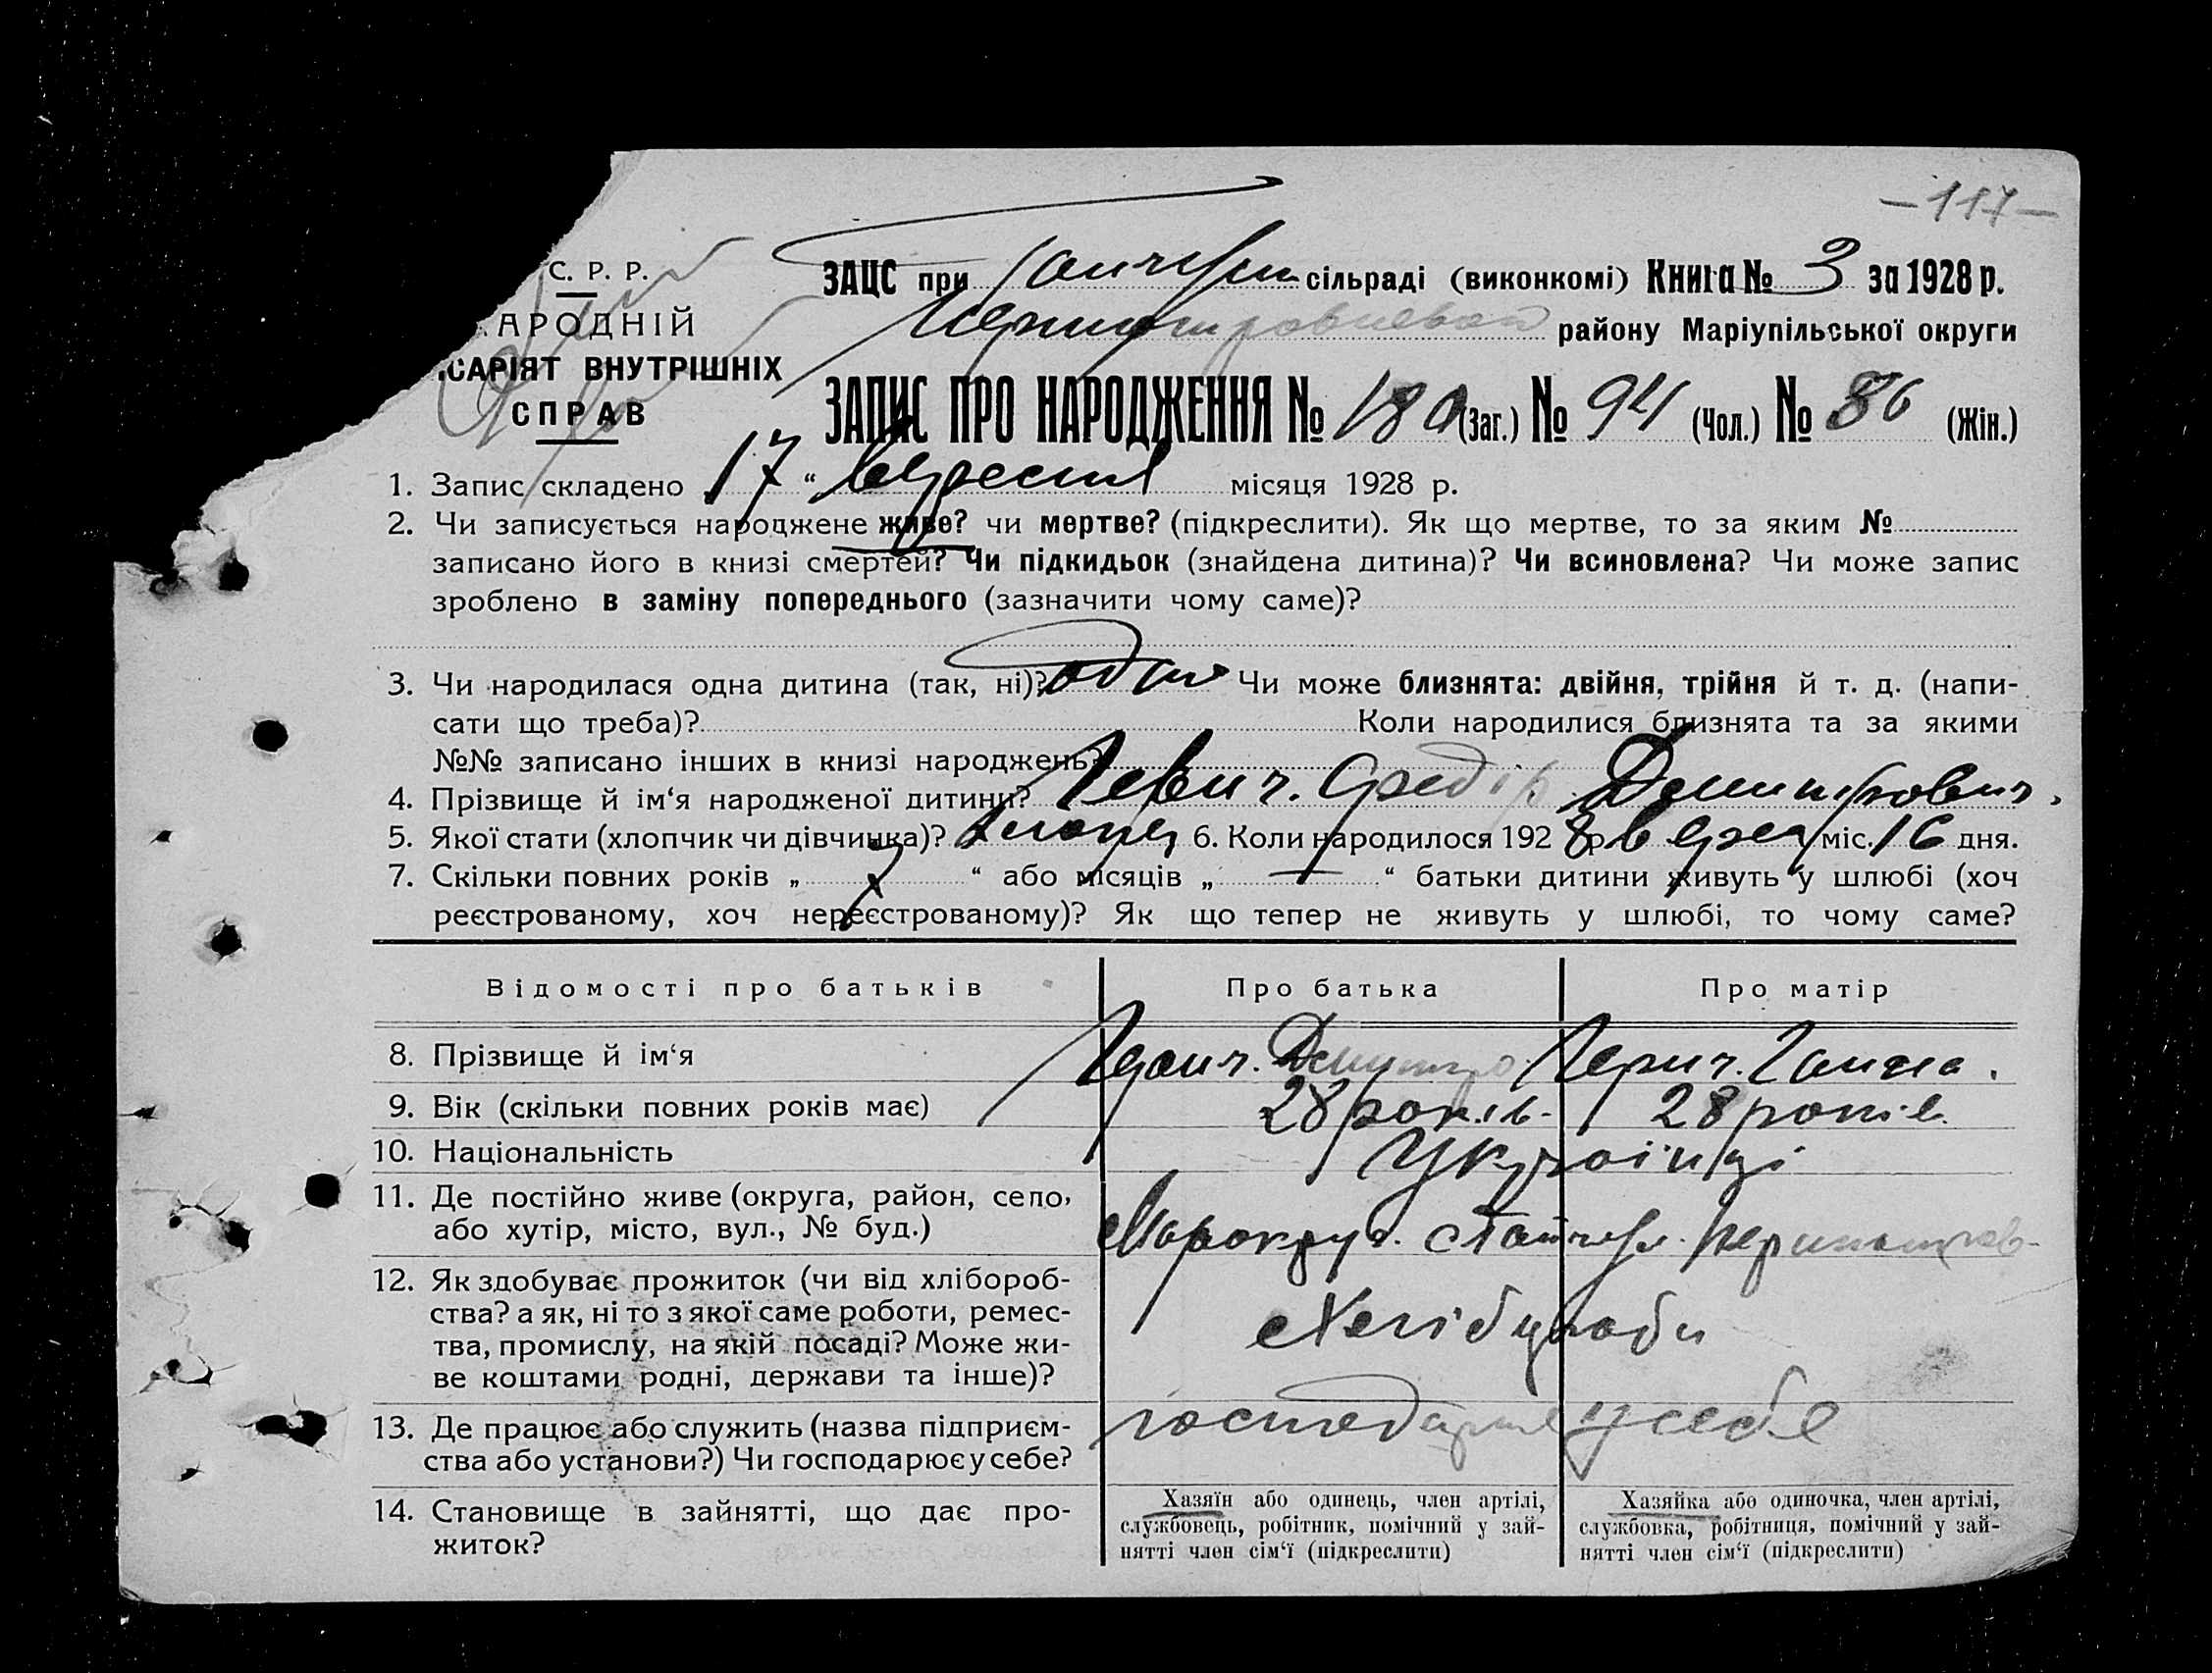 -117-
С. Р. Р.
АРОДНІЙ
САРІЯТ ВНУТРІШНІХ
СПРАВ
ЗАЦС при сільраді (виконкомі) Книга № 3 за 1928 р.
району Маріупільської округи
ЗАПИС ПРО НАРОДЖЕННЯ № 180 (Заг.) № 94 (Чол.) № 86 (Жін.)
1. Запис складено 17 “ вересня місяця 1928 р.
2. Чи записується народжене живе? чи мертве? (підкреслити). Як що мертве, то за яким №
записано його в книзі смертей? Чи підкидьок (знайдена дитина)? Чи всиновлена? Чи може запис
зроблено в заміну попереднього (зазначити чому саме)?
3. Чи народилася одна дитина (так, ні)? одна Чи може близнята: двійня, трійня й т. д. (напи-
сати що треба)? Коли народилися близнята та за якими
№№ записано інших в книзі народжень?
4. Прізвище й ім‘я народженої дитини? Федір Дмитрович.
5. Якої стати (хлопчик чи дівчинка)? хлопец 6. Коли народилося 1928 р. верес міс. 16 дня.
7. Скільки повних років „ 7 “ або місяців „ — “ батьки дитини живуть у шлюбі (хоч
реєстрованому, хоч нереєстрованому)? Як що тепер не живуть у шлюбі, то чому саме?
Відомості про батьків Про батька Про матір
8. Прізвище й ім‘я Дмитро Ганна.
9. Вік (скільки повних років має) 28 років. 28 років.
10. Національність Українці
11. Де постійно живе (округа, район, село,
або хутір, місто, вул., № буд.) Мароокруг.
12. Як здобуває прожиток (чи від хлібороб-
ства? а як, ні то з якої саме роботи, ремес-
тва, промислу, на якій посаді? Може жи-
ве коштами родні, держави та інше)? Хліборобы
13. Де працює або служить (назва підприєм-
ства або установи?) Чи господарює у себе? господарює у себе
14. Становище в зайнятті, що дає про-
житок?
Хазяїн або одинець, член артілі,
службовець, робітник, помічний у зай-
нятті член сім‘ї (підкреслити)
Хазяйка або одиночка, член артілі,
службовка, робітниця, помічний у зай-
нятті член сім‘ї (підкреслити)